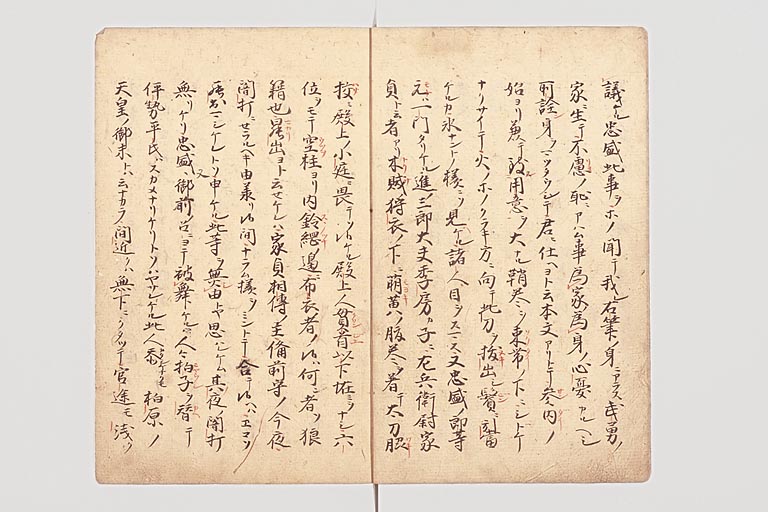 議ス忠盛此事ヲホノ聞テ我レ右筆ノ身ニアラス武勇ノ
家ニ生テ不慮ノ恥ニアハム事為家為身ノ心憂カルヘシ
所詮身ヲマツタウシテ君ニ仕ヘヨト云本文アリトテ参内ノ
始ヨリ兼テ致用意ヲ大ナル鞘巻ヲ束帯ノ下ニシトケ
ナリサイテ火ノホノクラキ方ニ向テ此刀ヲ抜出シ鬢ニ引當
ケルカ氷ナントノ様ニソ見ケル諸人目ヲスマス又忠盛郎等
元ハ一門タリケル進三郎大夫季房カ子ニ左兵衛尉家
貞ト云者アリ木賊狩衣ノ下ニ萌黄ノ腹巻ヲ着テ太刀脇
挟ミ殿上ノ小庭ニ畏テソ候ケル殿上人貫首以下怪ミヲナシ六
位ヲモテ空柱ヨリ内鈴綱ノ邊ニ布衣ノ者ノ候ハ何者ソ狼
籍也罷出ヨト云セケレハ家貞相傳ノ主備前守ノ今夜
闇打ニセラルヘキ由承リ候間ナラム様ヲミントテ合テ候ハエコソ
罷出マシケレトソ申ケル此等ヲ無由トヤ思ハレケム其夜闇打
無リケリ忠盛又御前ノ召ニヨテ被舞ケルニ人々拍子ヲ替テ
伊勢平氏ハスカメナリケリトソハヤサレケル此人忝モ柏原ノ
天皇ノ御末トハ云ナカラ間近クハ無下ニウタツテ官途モ浅ク